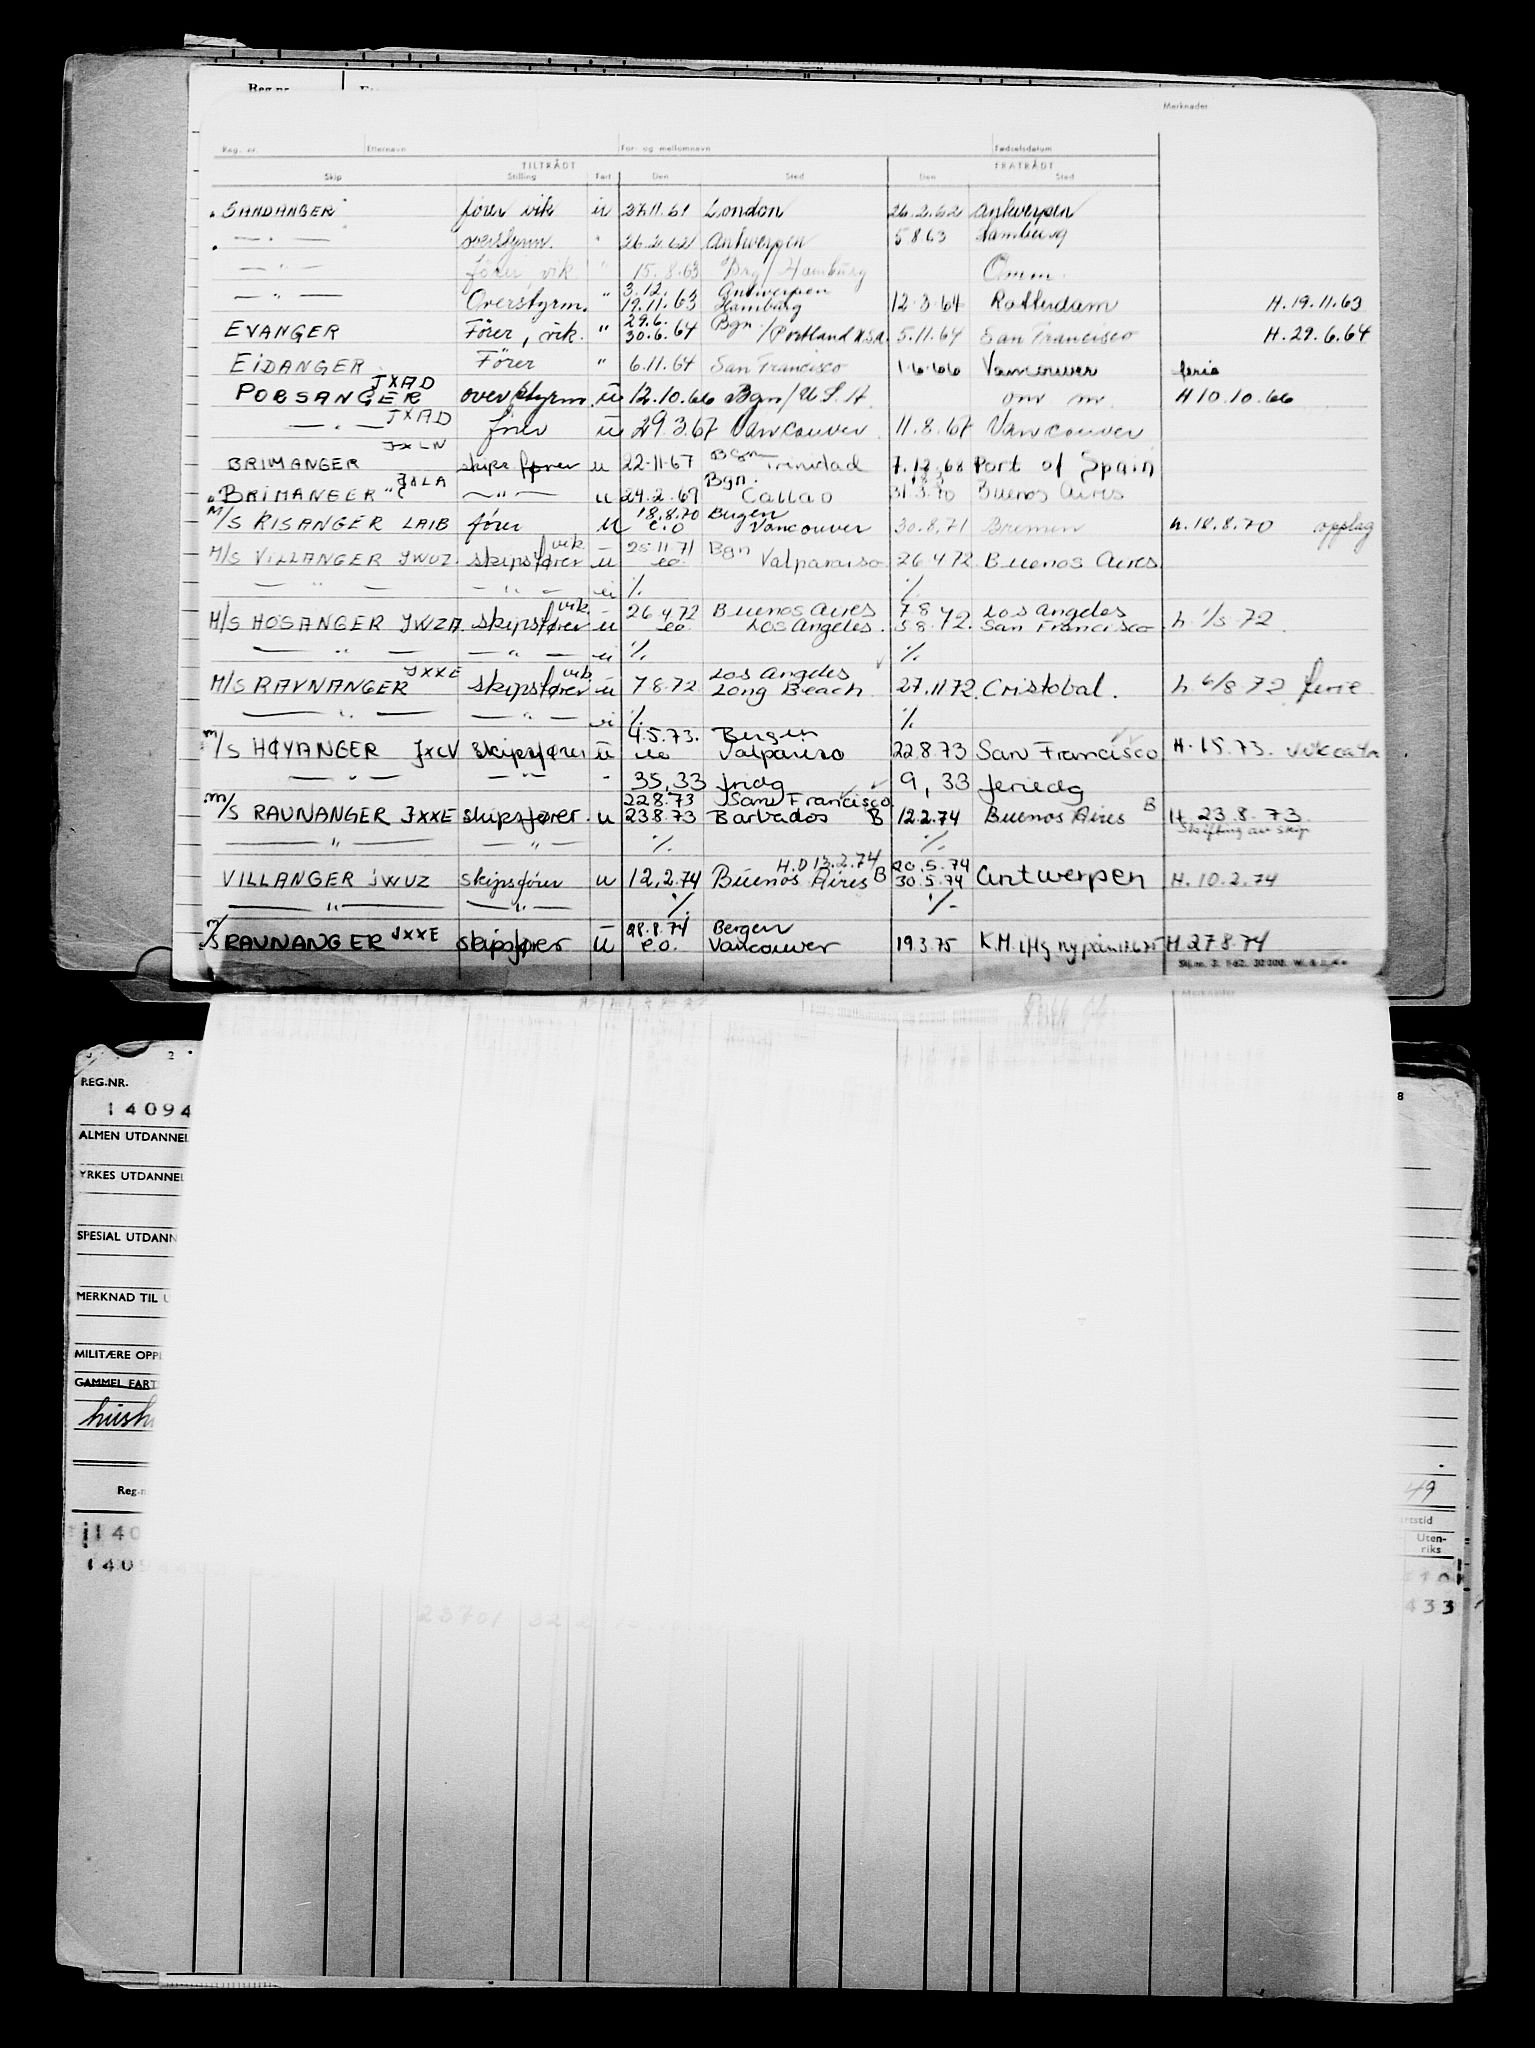 Reg.nr.
Merknader
Reg. nr. Etternavn For- og mellomnavn Fødselsdatum
TILTRÅDT FRATRÅDT
Skip Stilling Fart Den Sted Den Sted
"SANDANGER" fører vik u 27.11.61 London 26.2.62 Antwerpen
— " — overstyrm. " 26.2.62 Antwerpen 5 8 63 Hamburg
— " — fører, vik " 15.8.63 Brg/Hamburg Omm.
3.12. Antwerpen
— " — Overstyrm. " 19.11.63 Hamburg 12.3.64 Rotterdam H.19.11.63
29.6. Bgn.
EVANGER Fører, vik. " 30.6.64 /Portland U.S.A. 5.11.64 San Francisco H.29.6.64
EIDANGER Fører " 6.11.64 San Francisco 1.6.66 Vancouver ferie
JXAD
PORSANGER overstyrm. u 12.10.66 Bgn/U.S.A. om m. H 10.10.66
— " — JXAD fører u 29.3.67 Vancouver 11.8.67 Vancouver
JXLN
BRIMANGER skips fører u 22.11.67 Bgn Trinidad 7.12.68 Port of Spain
Bgn.
"BRIMANGER" — " — u 24.2.69 Callao 31.3.70 Buenos Aires
18.8.70 Bergen
M/S RISANGER LAIB fører u e.o Vancouver 30.8.71 Bremen h.18.8.70 opplag
vik 25.11.71 Bgn
M/S VILLANGER JWUZ. skipsfører u eo Valparaiso 26 4 72 Buenos Aires
— " — — " — ei % %
vik 26 4 72 Buenos Aires 7 8 Los Angeles
M/S HOSANGER JWZA skipsfører u eo Los Angeles. 5 8.72. San Francisco h. 1/5 72
— " — — " — ei % %
JXXE vik Los Angeles
M/S RAVNANGER skipsfører u 7 8.72 Long Beach 27.11 72. Cristobal. h. 6/8.72 ferie
— " — — " — ei % %
4.5.73. Bergen
M/S HØYANGER JXCV skipsfører u eo Valpariso 22.8.73 San Francisco H. 1.5.73.
— " — — " — - 35,33 fridg 9,33 feriedg
22.8.73 San Francisco
M/S RAVNANGER JXXE skipsfører u 23.8.73 Barbados B 12.2.74 Buenos Aires B H. 23.8.73
Skifting av skip
— " — — " — % %
H.D 13.2.74 20.5.74
VILLANGER JWUZ skipsfører u 12.2.74 Buenos Aires B 30.5.74 Antwerpen H.10.2.74
— " — — " — % %
28.8.74 Bergen
M/S RAVNANGER JXXE skipsfører u e.o. Vancouver 19.3.75 K.M. H.27.8.74
Merknader
REG.NR.
14094
ALMEN UTDANNEL
YRKES UTDANNEL
SPESIAL UTDANN
MERKNAD TIL U
MILITÆRE OPPL
GAMMEL FART
Reg.n
49
artstid
Uten-
riks
140
1409
433
23701 32
8